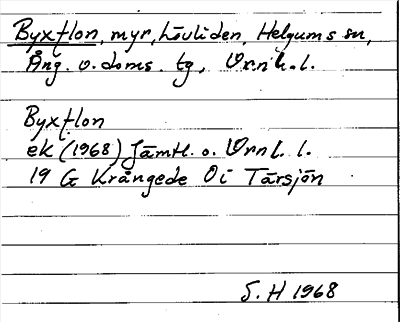 Byxflon, myr, Lövliden, Helgums sn,
Ång. v. doms. tg, Vrnl. l.
Byxflon
ek (1968) Jämtl. o. Vrnl. l.
19 G Krångede Oi Tärsjön
S. H 1968